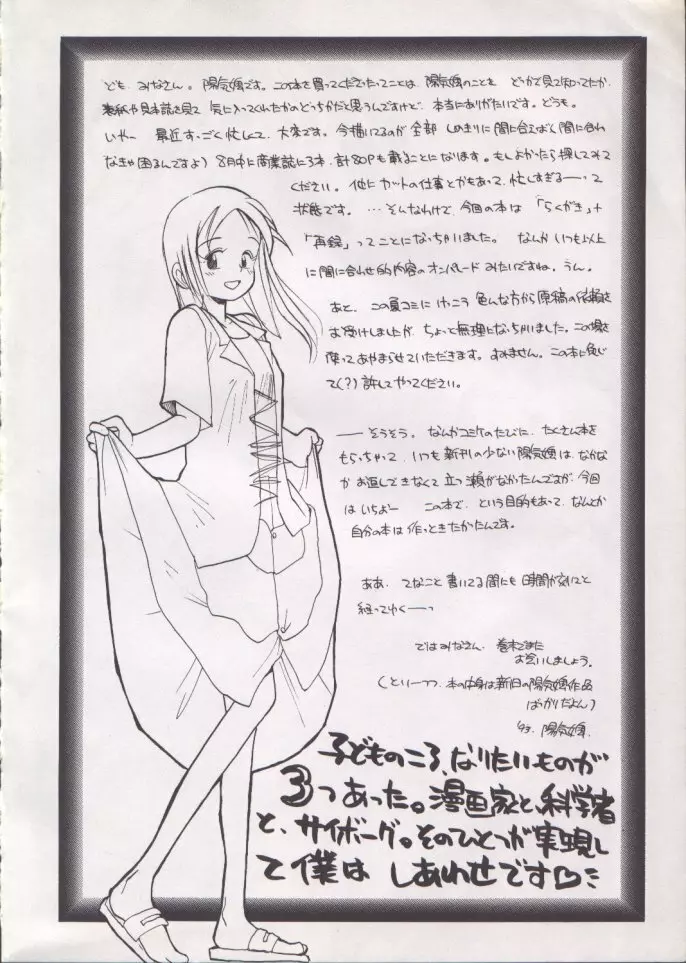 ども、みなさん。陽気婢です。この本を買ってくださったってことは、陽気婢のことを どこかで見て知ってたか、
表紙や見本誌を見て 気に入ってくれたかのどっちかだと思うんですけど、本当にありがたいです。どうも。
いやー 最近すっごく忙しくて、大変です。今描いてるのが全部 しめきりに間に合えばく間に合わ
なきゃ困るんですよ) 8月中に商業誌に3本、計80Pも載ることになります。もしよかったら探してみて
ください。他にカットの仕事とかもあって、忙しすぎるーーって
状態です。…そんなわけで、今回の本は「らくがき」+
「再録」ってことになっちゃいました。なんか いつも以上
に間に合わせ的内容のオンパレードみたいですね。うん。
あと、この夏コミに けっこう 色んな方から原稿の依頼を
お受けしましたが、ちょっと無理になっちゃいました。この場を
使ってあやまらせていただきます。すみません。この本に免じ
て(?)許してやってください。
——そうそう。なんかコミケのたびに、たくさん本を
もらっちゃって、いつも新刊の少ない陽気婢は、なかな
かお返しできなくて立つ瀬がなかったんですが、今回
はいちおー この本で、という目的もあって、なんとか
自分の本は作っときたかったんです。
ああ、てなこと書いてる間にも時間が刻々と
経ってゆくーっ
ではみなさん、巻末でまた
お会いしましょう。
(といーつつ、本の中身は新旧の陽気婢作品
ばっかりだよん)
'93. 陽気婢.
子どものころ、なりたいものが
3つあった。漫画家と、科学者
と、サイボーグ。そのひとつが実現し
て僕は しあわせです♡